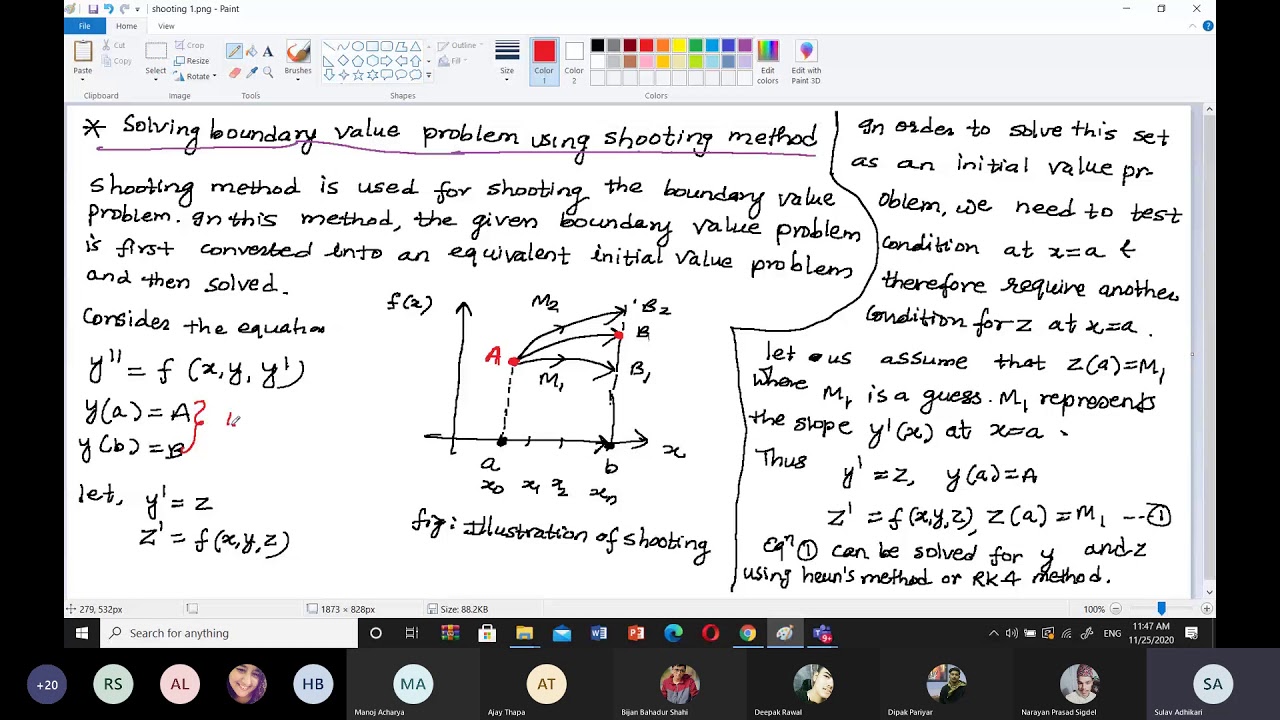 shooting 1.png - Paint
File
Home
View
Paste
Cut
Copy
Clipboard
Select
Crop
Resize
Rotate
Image
Tools
Brushes
Shapes
Outline
Fill
Size
Color 1
Color 2
Edit colors
Edit with Paint 3D
Colors
* Solving boundary value problem using shooting method
Shooting method is used for shooting the boundary value
problem. In this method, the given boundary value problem
is first converted into an equivalent initial value problem
and then solved.
Consider the equation
y'' = f (x, y, y')
y(a) = A
y(b) = B
let, y' = z
z' = f(x,y,z)
f(x)
M2
B2
A
B
M1
B1
a
b
x
x0 x1 x2 xn
fig: Illustration of shooting
In order to solve this set
as an initial value pr-
oblem, we need to test
condition at x=a &
therefore require another
condition for z at x=a.
let us assume that z(a)=M1
where M1 is a guess. M1 represents
the slope y'(x) at x=a.
Thus
y' = z, y(a)=A
z' = f(x,y,z), z(a)=M1 --- ①
Eqn ① can be solved for y and z
using heun's method or RK4 method.
279, 532px
1873 × 828px
Size: 88.2KB
100%
Search for anything
ENG
11:47 AM
11/25/2020
+20
RS
AL
HB
MA
Manoj Acharya
AT
Ajay Thapa
Bijan Bahadur Shahi
Deepak Rawal
Dipak Pariyar
Narayan Prasad Sigdel
SA
Sulav Adhikari